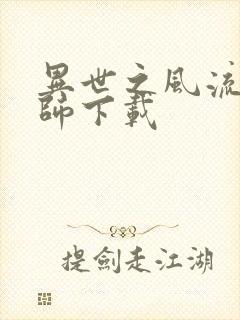 異世之風流
師下載
提劍走江湖